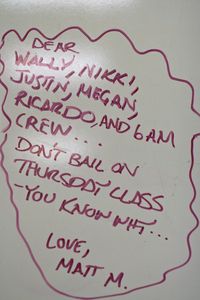 DEAR
WALLY, NIKKI,
JUSTIN, MEGAN,
RICARDO, AND 6 AM
CREW...
DON'T BAIL ON
THURSDAY CLASS
-YOU KNOW WHY...
LOVE,
MATT M.